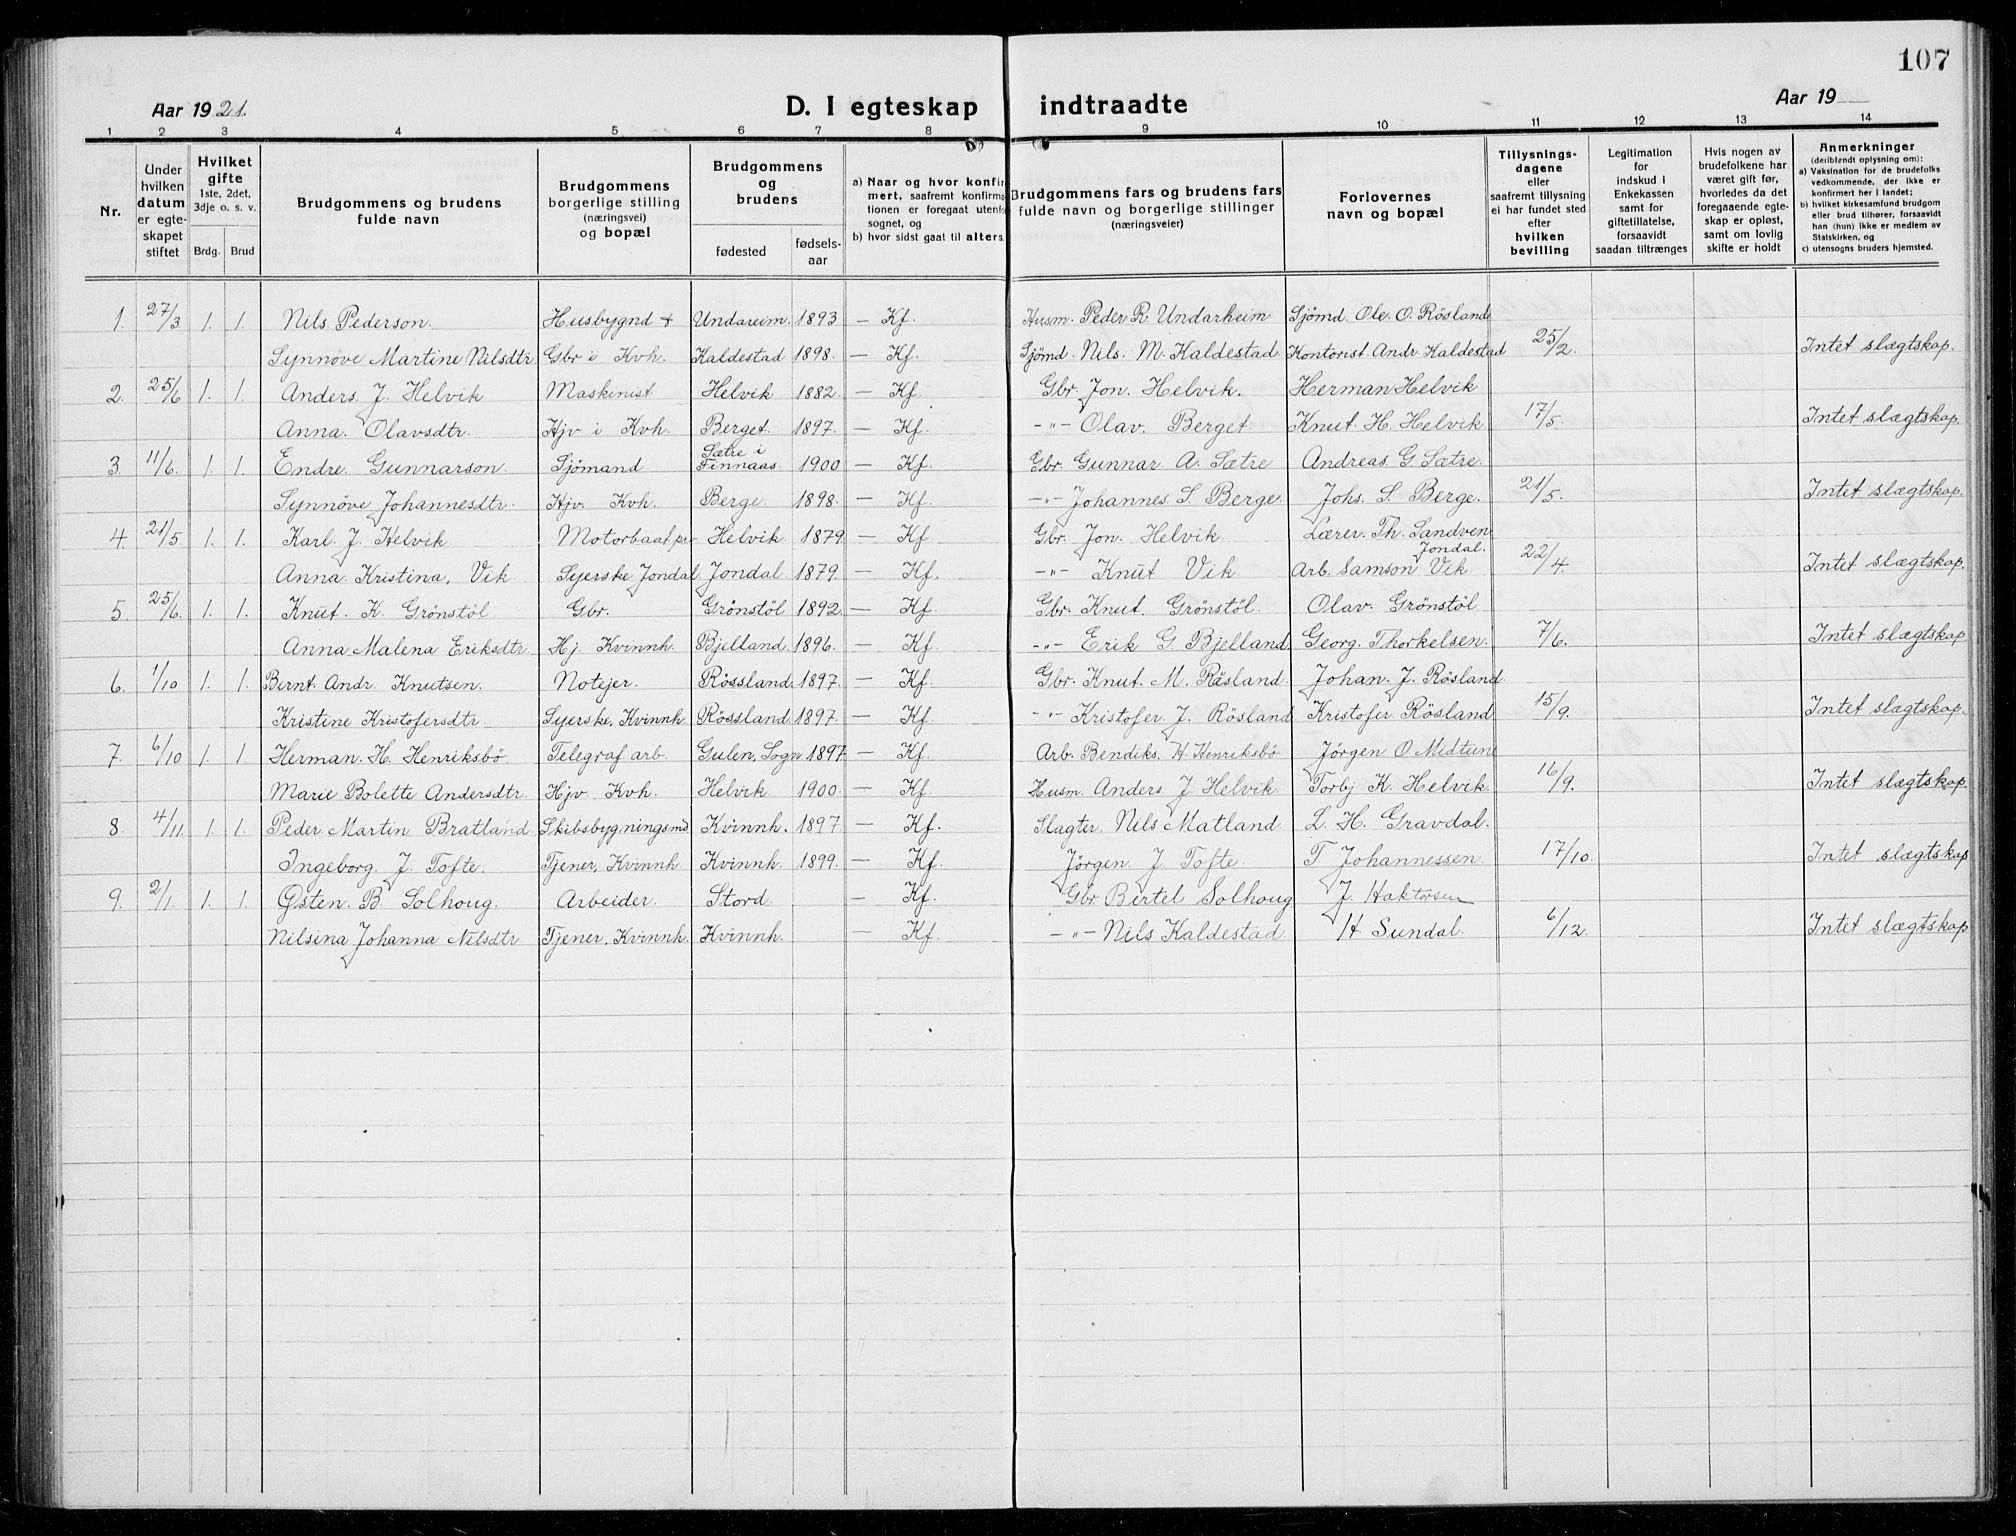 107
Aar 1921. D. I egteskap indtraadte Aar 19
1 2 3 4 5 6 7 8 9 10 11 12 13 14
Nr.
Under hvilken datum er egteskapet stiftet
Hvilket gifte 1ste, 2det, 3dje o. s. v.
Brdg. Brud
Brudgommens og brudens fulde navn
Brudgommens borgerlige stilling (næringsvei) og bopæl
Brudgommens og brudens
fødested fødsels-aar
a) Naar og hvor konfirmert, saafremt konfirmationen er foregaat utenfor sognet, og
b) hvor sidst gaat til alters.
Brudgommens fars og brudens fars fulde navn og borgerlige stillinger (næringsveier)
Forlovernes navn og bopæl
Tillysnings-dagene eller saafremt tillysning ei har fundet sted efter hvilken bevilling
Legitimation for indskud i Enkekassen samt for giftetillatelse, forsaavidt saadan tiltrænges
Hvis nogen av brudefolkene har været gift før, hvorledes da det foregaaende egteskap er opløst, samt om lovlig skifte er holdt
Anmerkninger (deriblendt oplysning om):
a) Vaksination for de brudefolks vedkommende, der ikke er konfirmert her i landet;
b) hvilket kirkesamfund brudgom eller brud tilhører, forsaavidt han (hun) ikke er medlem av Statskirken, og
c) utensogns bruders hjemsted.
1. 27/3 1. 1. Nils Pederson. Husbygnd + Undareim. 1893 — Kf. Husm. Peder R. Undarheim Sjömd. Ole. O. Rösland
Synnöve Martine Nilsdtr. Gbr i Kvh. Kaldestad 1898. — Kf. Sjömd. Nils. M. Kaldestad. Kontorist Andr. Kaldestad 25/2. Intet slægtskap.
2. 25/6 1. 1. Anders. J. Helvik Maskinist Helvik 1882. — Kf. Gbr. Jon. Helvik. Herman Helvik
Anna. Olavsdtr. Hjv i Kvh. Berget. 1897. — Kf. -"- Olav. Berget. Knut. H. Helvik 17/5. Intet slægtskap.
3. 11/6. 1. 1. Endre. Gunnarson. Sjömand Sætre i Finnaas. 1900 — Kf. Gbr. Gunnar. A. Sætre Andreas. G. Sætre.
Synnöve Johannesdtr. Hjv. Kvh. Berge. 1898. — Kf. -"- Johannes. S. Berge. Johs. S. Berge. 21/5. Intet slægtskap.
4. 21/5. 1. 1. Karl. J. Helvik Motorbaat Helvik. 1879. — Kf Gbr. Jon. Helvik Lærer. Th. Sandven Jondal.
Anna. Kristina, Vik Syerske Jondal. Jondal. 1879. — Kf. -"- Knut Vik Arb. Samson Vik 22/4. Intet slægtskap.
5. 25/6. 1. 1. Knut. K. Grönstöl Gbr. Grönstöl 1892. — Kf. Gbr. Knut. Grönstöl. Olav. Grönstöl
Anna Malena Eriksdtr. Hj. Kvinnh. Bjelland. 1896. — Kf. -"- Erik G. Bjelland. Georg. Thorkelsen. 7/6. Intet slægtskap
6. 1/10 1. 1. Bernt. Andr. Knutsen. Notejer. Rössland. 1897. — Kf. Gbr. Knut. M. Räsland. Johan. J. Rösland
Kristine Kristofersdtr. Syerske, Kvinnh. Rössland. 1897. — Kf. -"- Kristofer J. Rösland Kristofer Rösland 15/9. Intet slægtskap.
7. 6/10 1. 1. Herman. H. Henriksbö Telegraf arb. Gulen, Sogn 1897 — Kf. Arb. Bendiks. H. Henriksbö Jörgen O. Midtune
Marie Bolette Andersdtr. Hjv. Kvh. Helvik. 1900. — Kf. Husm. Anders. J. Helvik Torbj K. Helvik. 16/9. Intet slægtskap.
8. 4/11 1. 1. Peder. Martin Bratland. Skibsbygningsmd. Kvinnh. 1897. — Kf. Slagter. Nils Matland. L. H. Gravdal.
Ingeborg. J. Tofte. Tjener, Kvinnh. Kvinnh. 1899. — Kf. Jörgen. J. Tofte. T Johannessen. 17/10. Intet slægtskap
9. 2/1. 1. 1. Østen. B. Solhoug. Arbeider. Stord. — Kf. Gbr Bertel Solhoug J. Haktorsen
Nilsina Johanna Nilsdtr Tjener. Kvinnh. Kvinnh. — Kf. -"- Nils Kaldestad. H Sundal. 6/12. Intet slægtskap